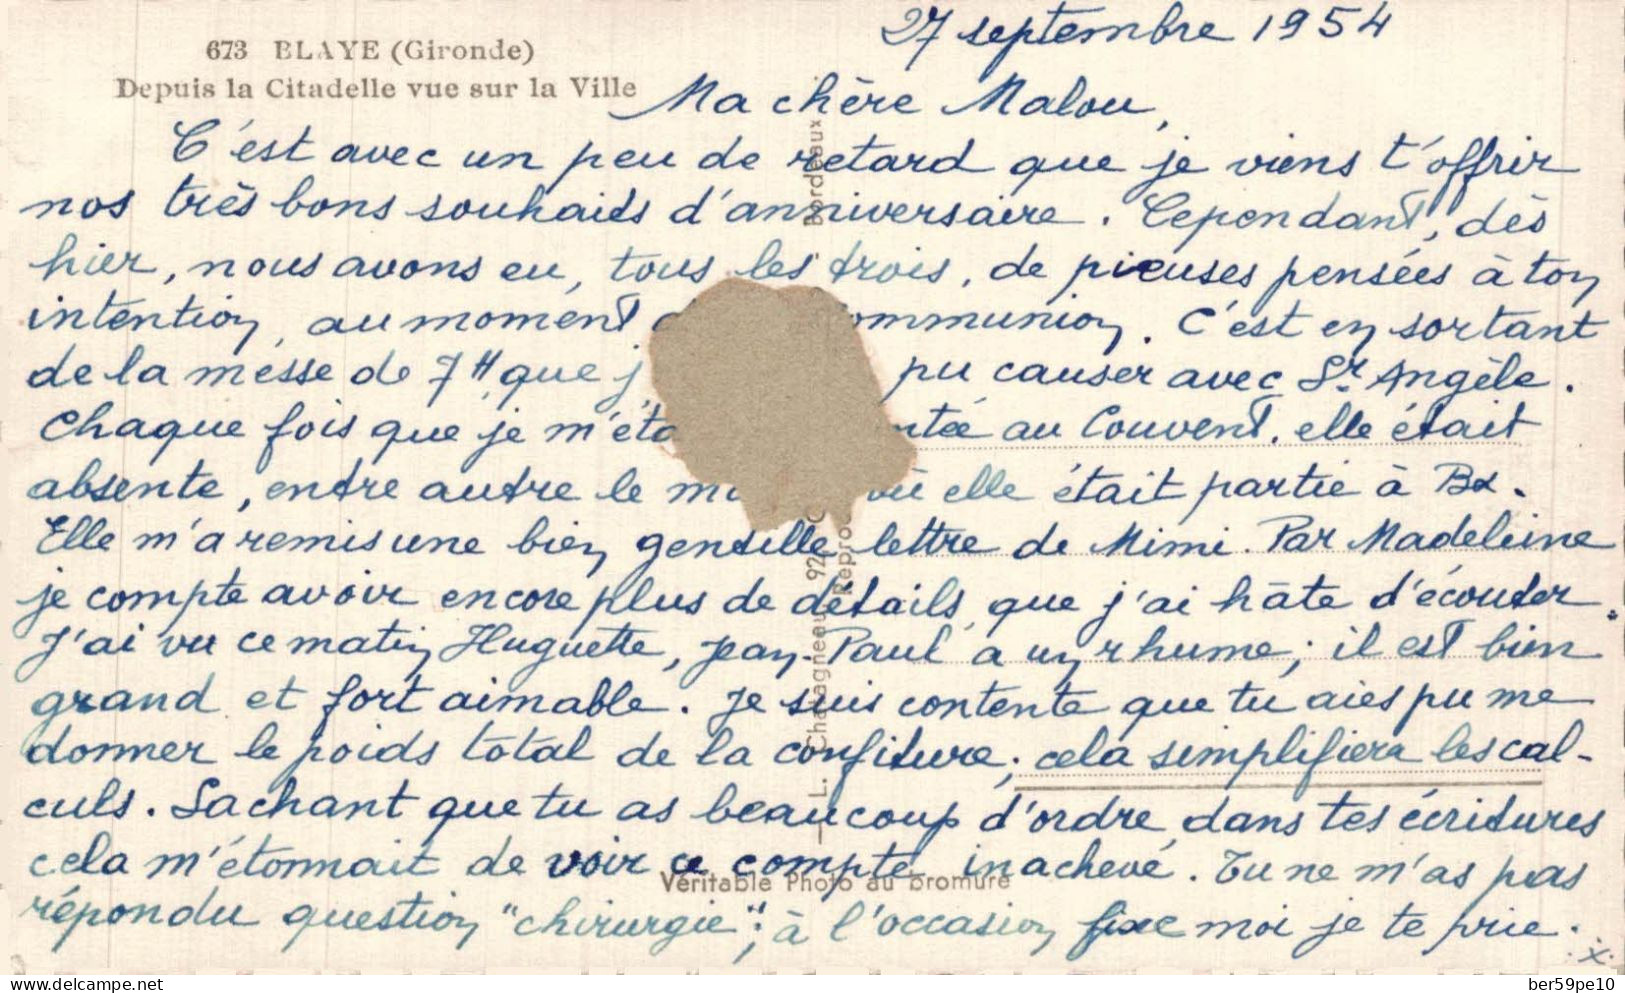 27 septembre 1954
673 BLAYE (Gironde)
Depuis la Citadelle vue sur la Ville
Ma chère Malou,
C'est avec un peu de retard que je viens t'offrir
nos très bons souhaits d'anniversaire. Cependant, dès
hier, nous avons eu, tous les trois, de pieuses pensées à ton
intention, au moment ommunion. C'est en sortant
de la messe de 7H que j pu causer avec Sr Angèle.
Chaque fois que je m'éta ntée au Couvent, elle était
absente, entre autre le m où elle était partie à Bx.
Elle m'a remis une bien gentille lettre de Mimi. Par Madeleine
je compte avoir encore plus de détails, que j'ai hâte d'écouter.
J'ai vu ce matin Huguette, Jean-Paul a un rhume; il est bien
grand et fort aimable. Je suis contente que tu aies pu me
donner le poids total de la confiture; cela simplifiera les cal-
culs. Sachant que tu as beaucoup d'ordre dans tes écritures
cela m'étonnait de voir ce compte inachevé. Tu ne m'as pas
répondu question "chirurgie"; à l'occasion fixe moi je te prie.
L. Chatagneau 92 Bordeaux
Reprod
Véritable Photo au bromure
delcampe.net
ber59pe10